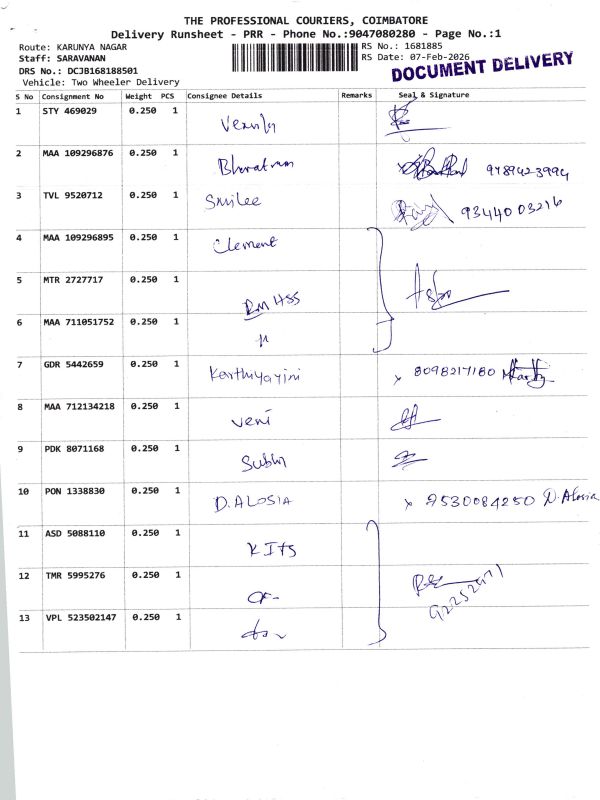 THE PROFESSIONAL COURIERS, COIMBATORE
Delivery Runsheet - PRR - Phone No.:9047080280 - Page No.:1
Route: KARUNYA NAGAR
RS No.: 1681885
Staff: SARAVANAN
RS Date: 07-Feb-2026
DRS No.: DCJB168188501
DOCUMENT DELIVERY
Vehicle: Two Wheeler Delivery
S No Consignment No Weight PCS Consignee Details Remarks Seal & Signature
1 STY 469029 0.250 1
2 MAA 109296876 0.250 1 Bharatram
3 TVL 9520712 0.250 1 Smilee 9344003216
4 MAA 109296895 0.250 1 Clement
5 MTR 2727717 0.250 1 RM HSS
6 MAA 711051752 0.250 1
7 GDR 5442659 0.250 1 Karthiyayini x 8098217180
8 MAA 712134218 0.250 1 Veni
9 PDK 8071168 0.250 1
10 PON 1338830 0.250 1 D.ALOSIA x 9530084250 D.Alosia
11 ASD 5088110 0.250 1 KITS
12 TMR 5995276 0.250 1
13 VPL 523502147 0.250 1